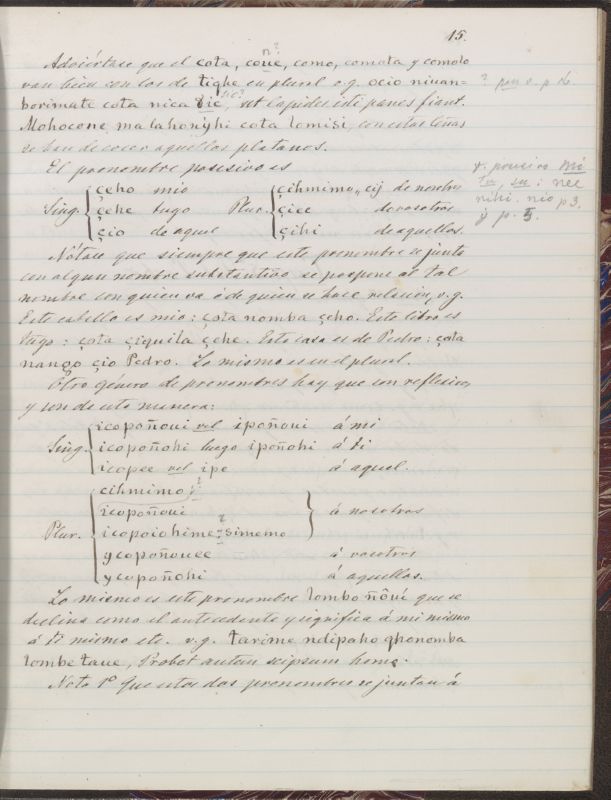 15.
Adviértase que el cota, coue, como, comota y comoto
van bien con los de tighe en plural v.g. ocio niuan-
borimute cota nica die, ut lapides isti panes fiant.
Mohocone malahonyhi cota lomisi, con estas leñas
se han de cocer aquellos platanos.
El pronombre posesivo es
Sing. çeho mio Plur. çihmimo, cij de nosotros
çehe tuyo çiee de vosotros
çio de aquel çihi de aquellos.
Nótase que siempre que este pronombre se junta
con algun nombre substantivo se pospone al tal
nombre con quien va ó de quien se hace relacion, v.g.
Este cabello es mio: çota nomba çeho. Este libro es
tuyo: çota çiquila çehe. Esta casa es de Pedro: çota
nanço çio Pedro. Lo mismo es en el plural.
Otro género de pronombres hay que son reflexivos,
y son de esta manera:
Sing. icopoñoui vel ipoñoui á mi
icopoñohi luego ipoñohi á ti
icopee vel ipe á aquel.
Plur. cihmimo
icopoñoui á nosotros
icopoiohime-simemo
ycopoñouee á vosotros
ycopoñohi á aquellos.
Lo mismo es este pronombre lomboñôui que se
declina como el antecedente y significa á mi mismo
á ti mismo etc. v.g. tarime ndipaho qhonomba
lombe taue, Probet autem seipsum homo.
Nota 1º Que estos dos pronombres se juntan á